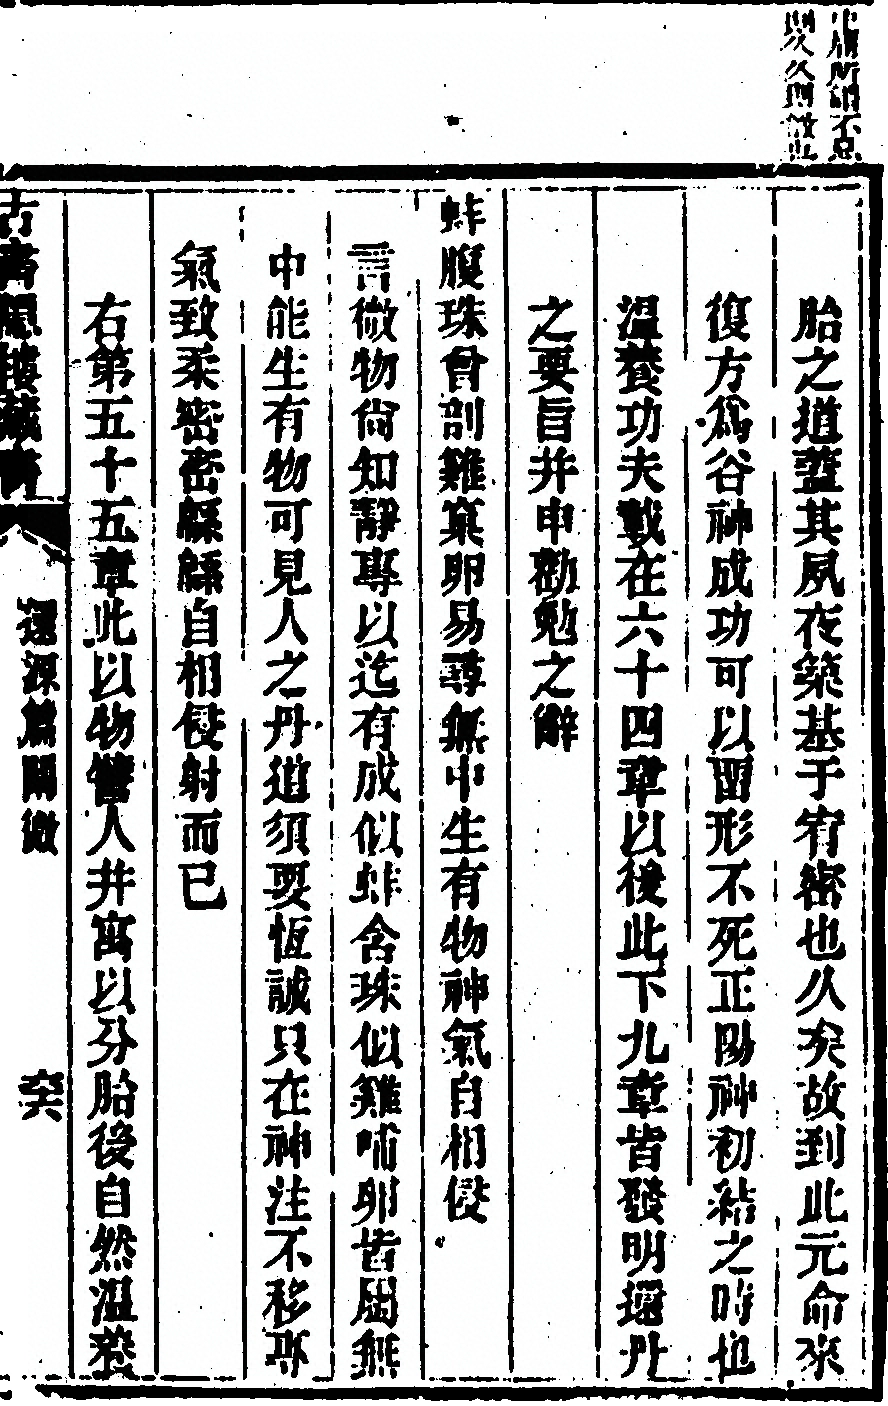 中庸所謂不息
則久久則徵也
胎之道蓋其夙夜築基于宥密也久矣故到此元命來
復方爲谷神成功可以畱形不死正陽神初結之時也
溫養功夫載在六十四章以後此下九章皆發明還丹
之要旨并申勸勉之辭
蚌腹珠曾剖雞窠卵易尋無中生有物神氣自相侵
言微物尙知靜專以迄有成似蚌含珠似雞哺卵皆居無
中能生有物可見人之丹道須要恆誠只在神注不移專
氣致柔密密緜緜自相侵射而已
右第五十五章此以物譬人并寓以分胎後自然溫養
古書隱樓藏書
還源篇闡微